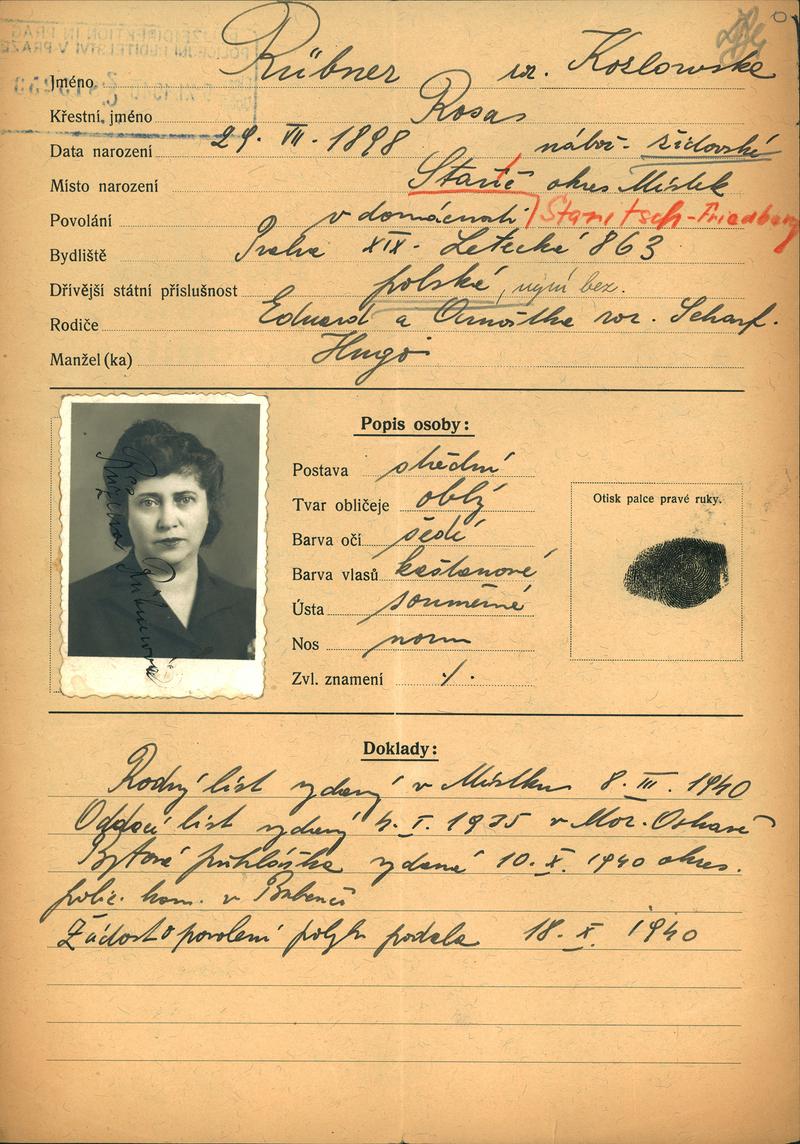 Jméno Rübner roz. Kozlowská
Křestní jméno Rosa
Data narození 29. VII. 1898 nábož. židovské
Místo narození Staříč okres Místek
Povolání v domácnosti Staritsch-Friedberg
Bydliště Praha XIX. Letecká 863
Dřívější státní příslušnost polská, nyní bez.
Rodiče Eduard a Arnoštka roz. Scharf.
Manžel (ka) Hugo
Popis osoby:
Postava střední
Tvar obličeje oblý
Barva očí šedé
Barva vlasů kaštanové
Ústa souměrné
Nos norm
Zvl. znamení ./.
Otisk palce pravé ruky.
Růžena Rübnerová
Doklady:
Rodný list vydaný v Místku 8. III. 1940
Oddací list vydaný 4. I. 1935 v Mor. Ostravě
Bytová přihláška vydaná 10. X. 1940 okres.
polic. kom. v Bubenči
Žádost o povolení pobytu podala 18. X. 1940